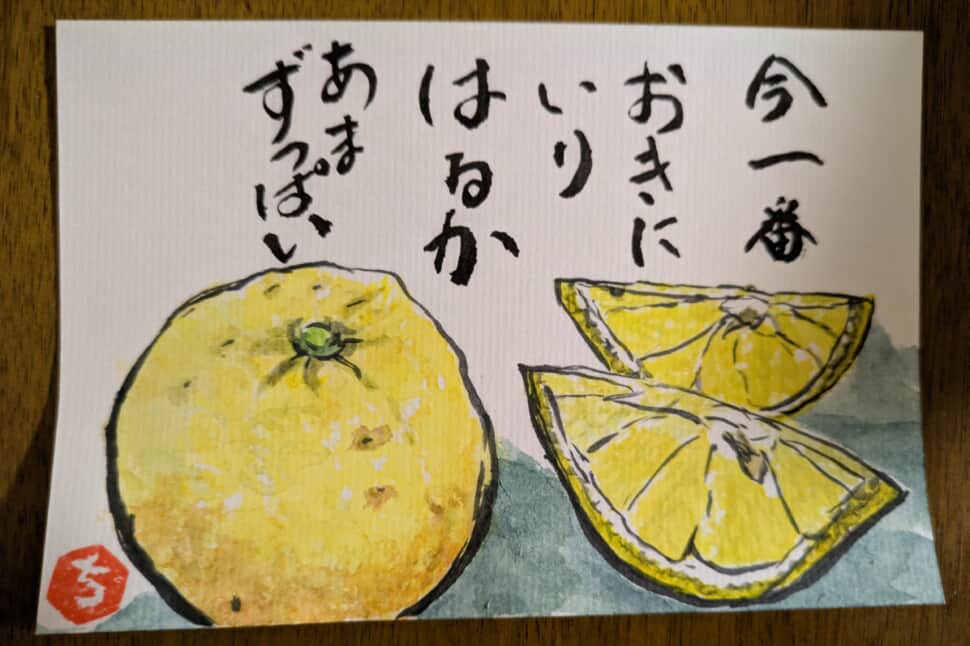 今一番
おきに
いり
はるか
あま
ずっぱい